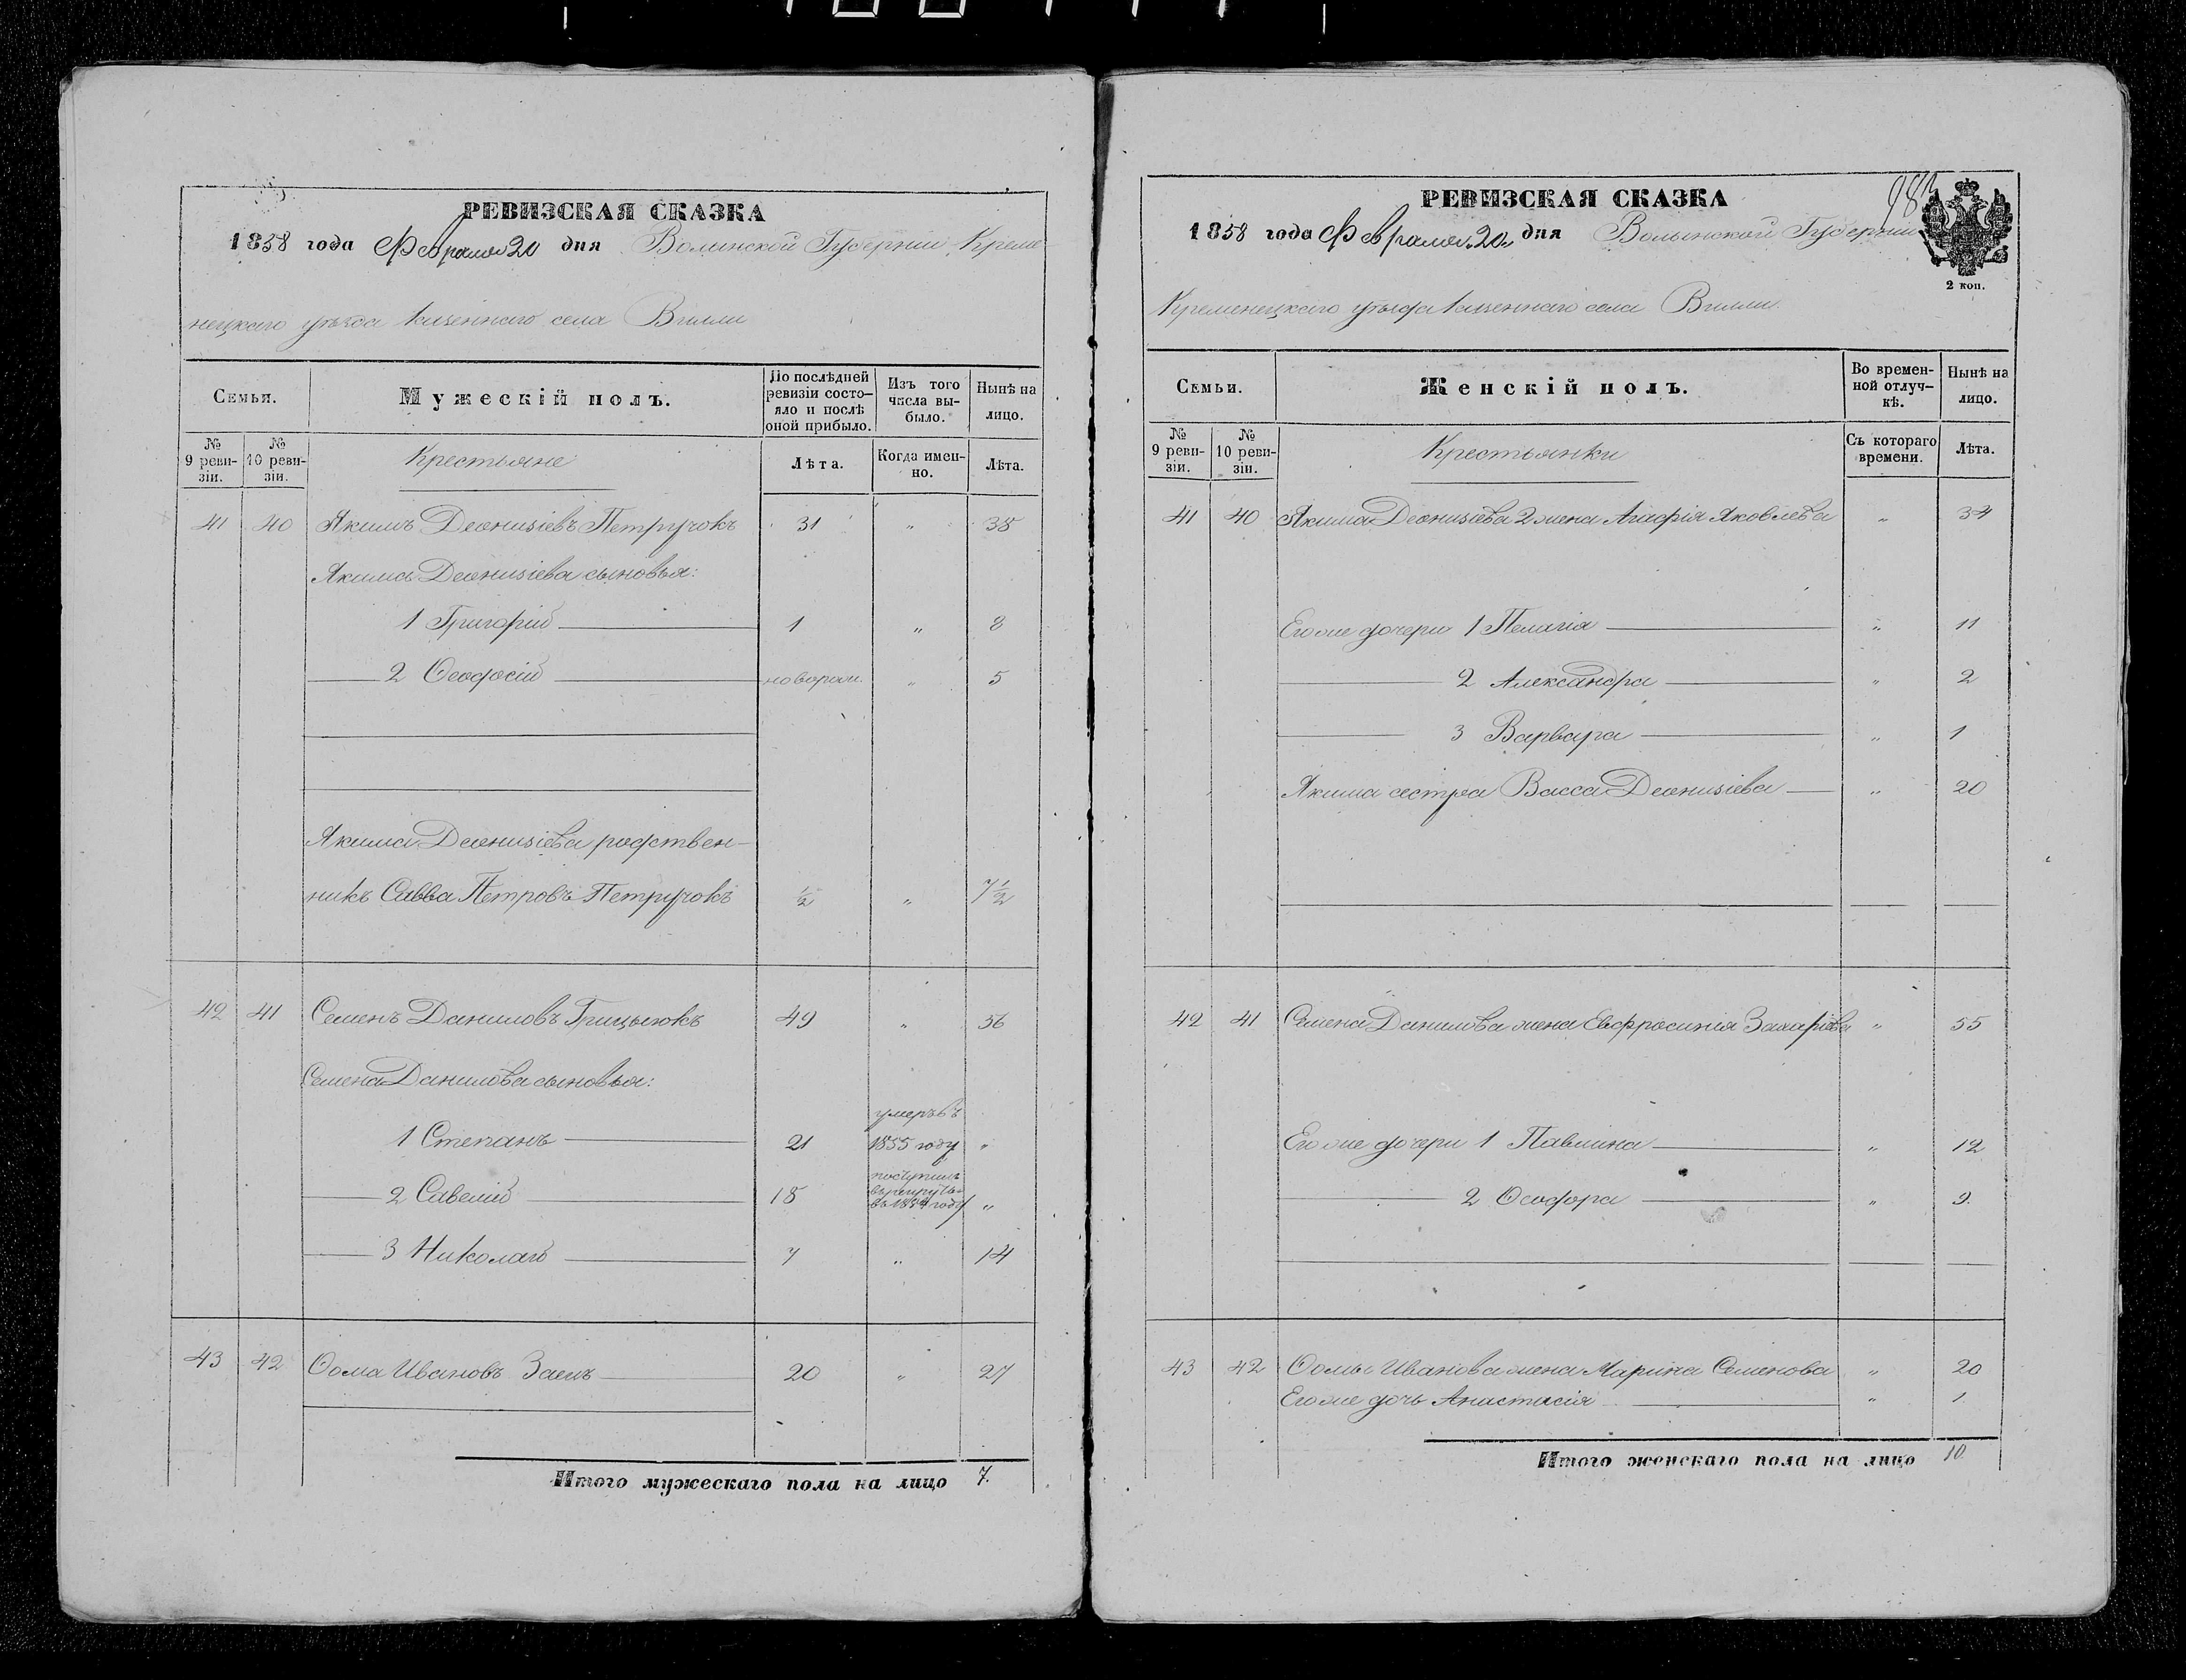 РЕВИЗСКАЯ СКАЗКА
1858 года Февраля 20 дня Волынской Губерніи Креме-
нецкаго уѣзда казеннаго села Вилли
Семьи.
Мужескій полъ.
По послѣдней ревизіи состо-яло и послѣ оной прибыло.
Изъ того числа вы-было.
Нынѣ на лицо.
№ 9 реви-зіи.
№ 10 реви-зіи.
Крестьяне
Лѣта.
Когда имен-но.
Лѣта.
41 40 Якимъ Деонизіевъ Петручокъ 31 " 38
Якима Деонизіева сыновья:
1 Григорій 1 " 8
2 Ѳеодосій новорож. " 5
Якима Деонизіева родствен-
никъ Савва Петровъ Петручокъ ½ " 7½
42 41 Семенъ Даниловъ Грицьюкъ 49 " 56
Семена Данилова сыновья:
умеръ въ
1 Степанъ 21 1855 году "
поступилъ
въ рекруты
2 Савелій 18 въ 1854 году "
3 Николай 7 " 14
43 42 Ѳома Ивановъ Заецъ 20 " 27
Итого мужескаго пола на лицо 7.
РЕВИЗСКАЯ СКАЗКА
1858 года Февраля 20 дня Волынской Губерніи
2 коп.
Кременецкаго уѣзда казеннаго села Вилли
Семьи.
Женскій полъ.
Во времен-ной отлуч-кѣ.
Нынѣ на лицо.
№ 9 реви-зіи.
№ 10 реви-зіи.
Крестьянки
Съ котораго времени.
Лѣта.
41 40 Якима Деонизіева 2 жена Агафія Яковлева " 34
Его же дочери 1 Пелагія " 11
2 Александра " 2
3 Варвара " 1
Якима сестра Васса Деонизіева " 20
42 41 Семена Данилова жена Евфросинія Захаріева " 55
Его же дочери 1 Павлина " 12
2 Ѳеодора " 9.
43 42 Ѳомы Иванова жена Марина Семенова " 20
Его же дочь Анастасія " 1
Итого женскаго пола на лицо 10